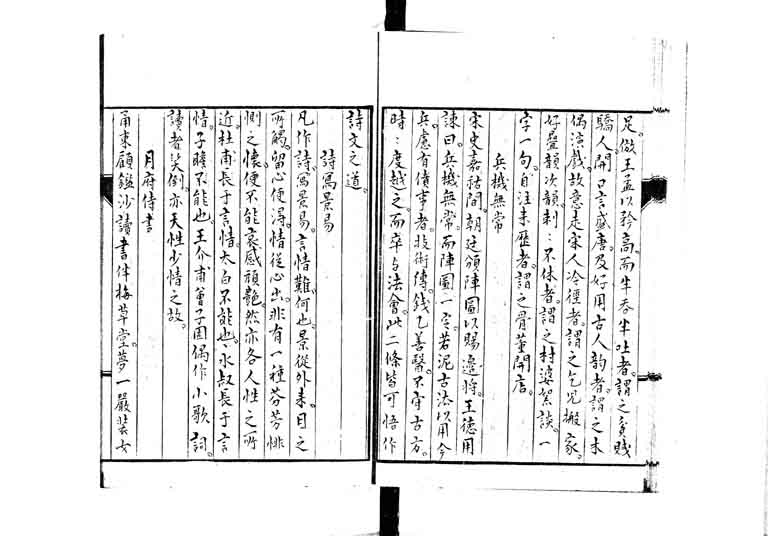 足。倣王孟以矜高。而半吞半吐者。謂之貧賤
驕人。開口言盛唐。及好用古人韵者。謂之木
偶演戲。故意走宋人冷徑者。謂之乞児搬家。
好疊韻次韻。剌：不休者。謂之村婆絮談。一
字一句。自注来歷者。謂之骨董開店。
兵機無常
宋史嘉祐間。朝廷頒陣圖以賜邊将。王德用
諫曰。兵機無常。而陣圖一定。若泥古法以用今
兵。慮有僨事者。技術傳。錢乙善醫。不守古方。
時：度越之。而卒与法會。此二條皆可悟作
詩文之道。
詩寫景易
凡作詩。寫景易。言情難。何也。景從外来。目之
所觸。留心便得。情從心出。非有一種芬芳悱
惻之懷。便不能哀感頑艶。然亦各人性之所
近。杜甫長于言情。太白不能也。永叔長于言
情。子瞻不能也。王介甫曾子固偶作小歌詞。
讀者笑倒。亦天性少情之故。
月府侍書
甬東顧鑑沙讀書伴梅草堂。夢一嚴裝女